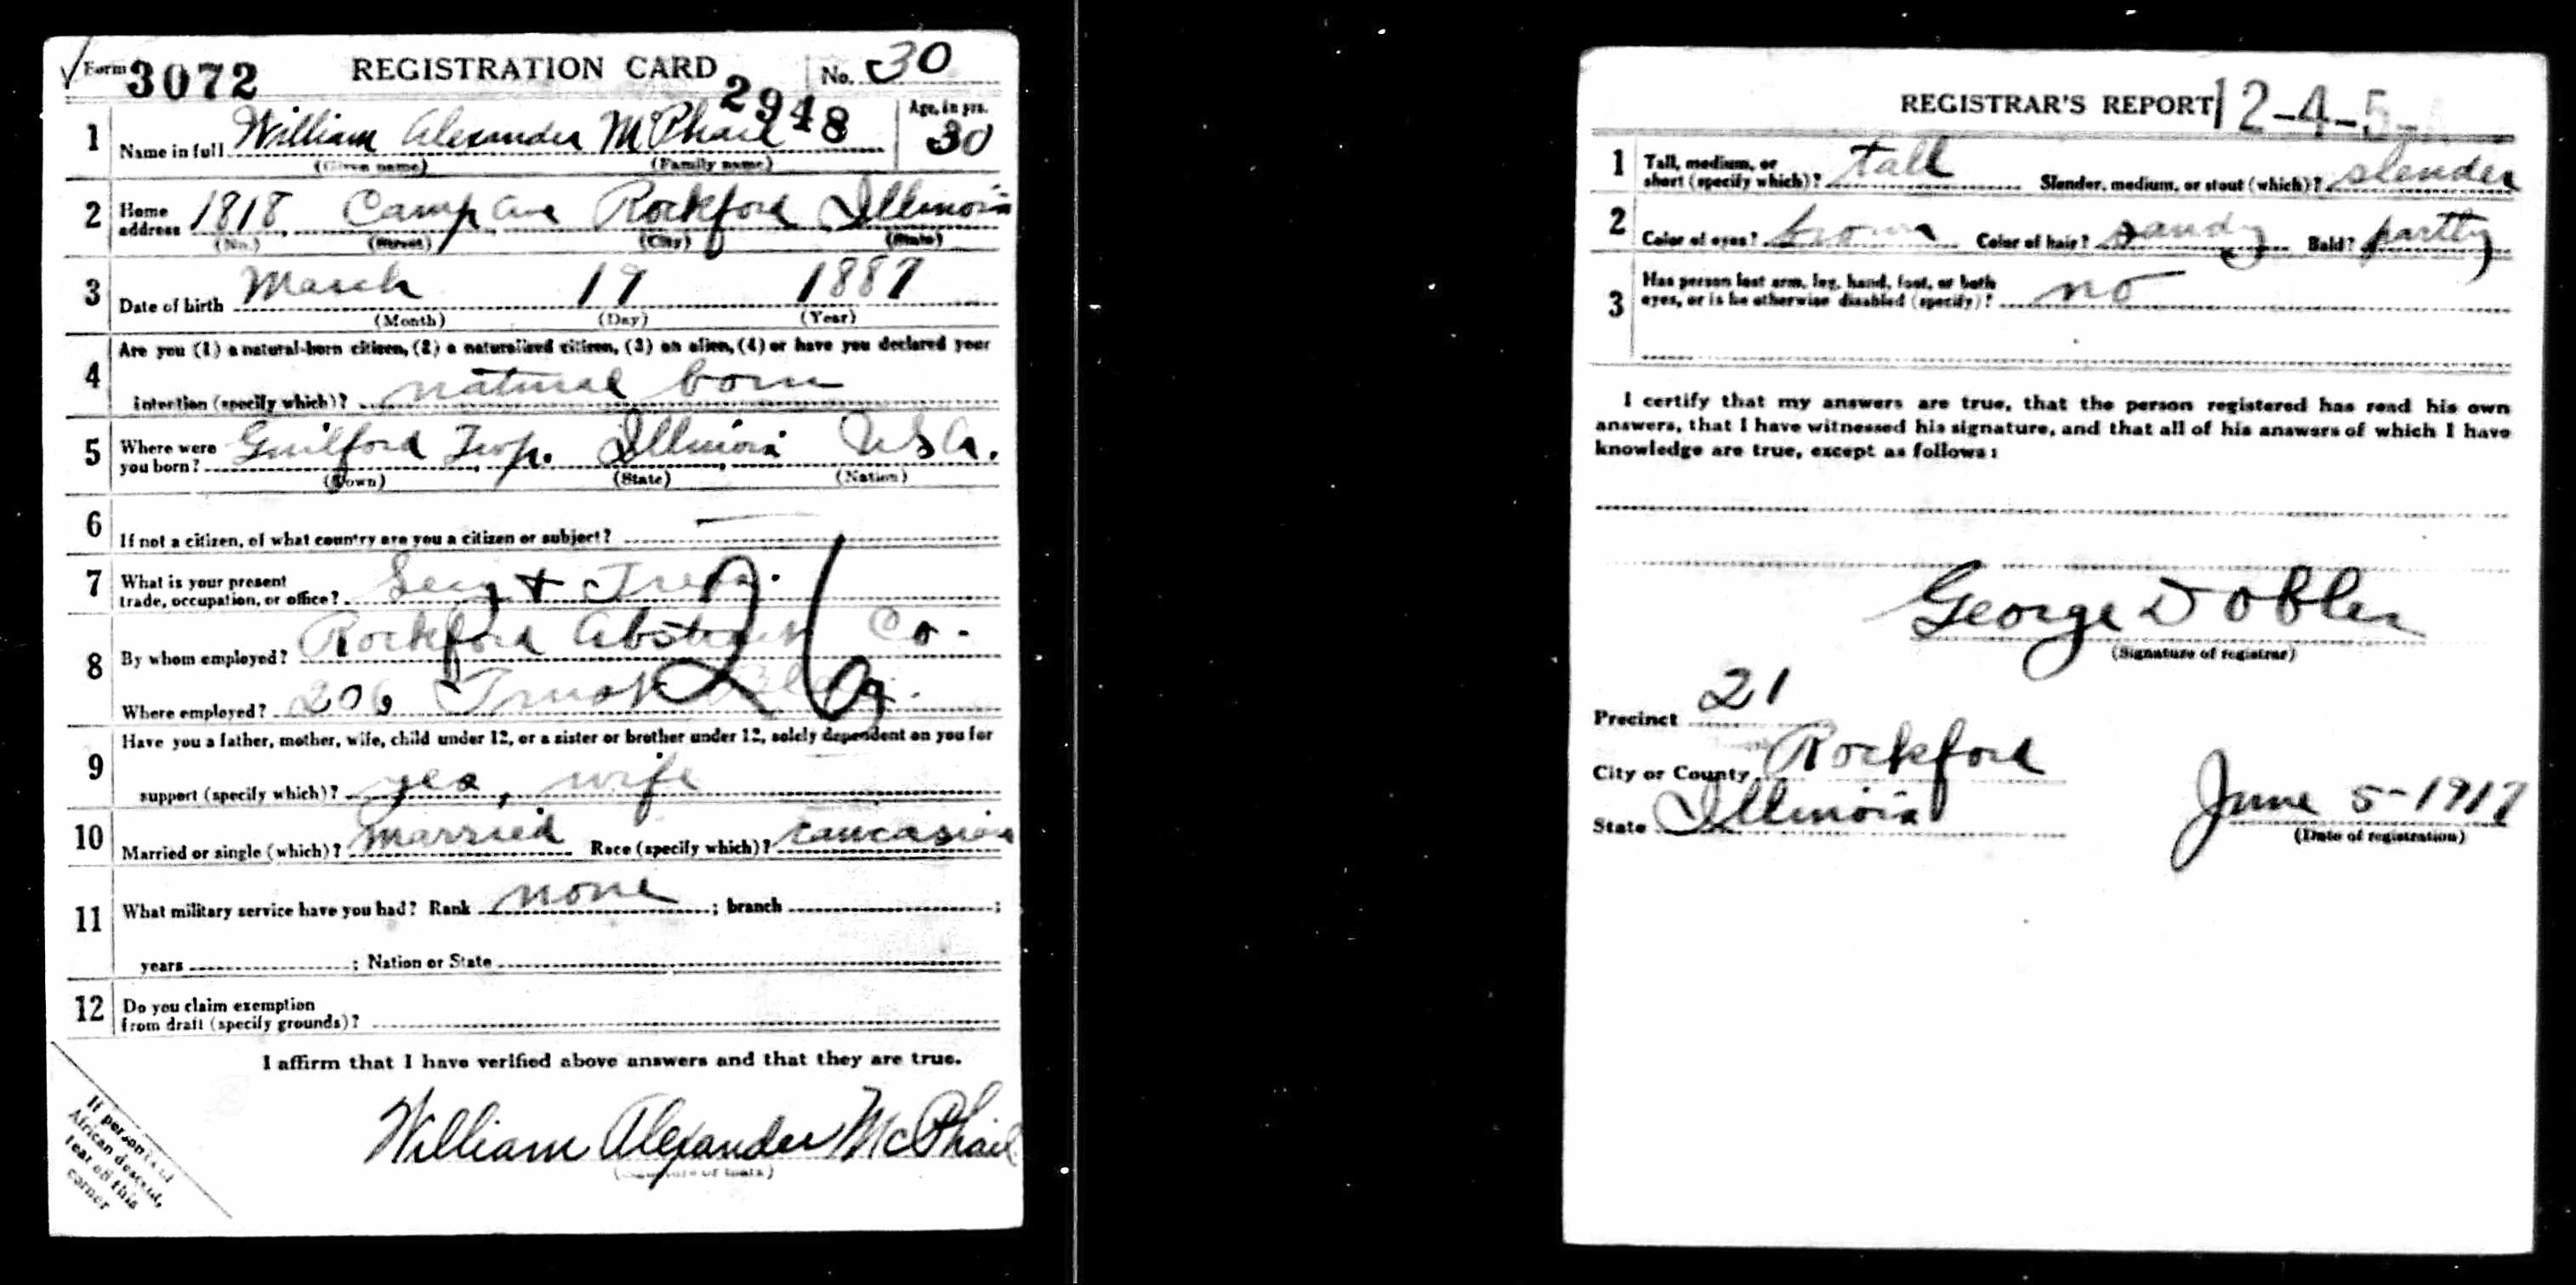 ✓ Form 3072 REGISTRATION CARD No. 30
2948
1 Name in full William Alexander McPhail Age, in yrs. 30
(Given name) (Family name)
2 Home address 1818 Camp Ave Rockford Illinois
(No.) (Street) (City) (State)
3 Date of birth March 19 1887
(Month) (Day) (Year)
4 Are you (1) a natural-born citizen, (2) a naturalized citizen, (3) an alien, (4) or have you declared your
intention (specify which)? natural born
5 Where were you born? Guilford Twp. Illinois USA.
(Town) (State) (Nation)
6 If not a citizen, of what country are you a citizen or subject? —
7 What is your present trade, occupation, or office? Secy + Treas.
26
8 By whom employed? Rockford Abstract Co.
Where employed? 206 Trust Bldg.
9 Have you a father, mother, wife, child under 12, or a sister or brother under 12, solely dependent on you for
support (specify which)? yes, wife
10 Married or single (which)? married Race (specify which)? caucasian
11 What military service have you had? Rank none ; branch ;
years ; Nation or State
12 Do you claim exemption
from draft (specify grounds)?
I affirm that I have verified above answers and that they are true.
William Alexander McPhail
If person is of
African descent,
tear off this
corner
REGISTRAR'S REPORT 12-4-5-
1 Tall, medium, or
short (specify which)? tall Slender, medium, or stout (which)? slender
2 Color of eyes? brown Color of hair? sandy Bald? partly
3 Has person lost arm, leg, hand, foot, or both
eyes, or is he otherwise disabled (specify)? no
I certify that my answers are true, that the person registered has read his own
answers, that I have witnessed his signature, and that all of his answers of which I have
knowledge are true, except as follows:
George Dobler
(Signature of registrar)
Precinct 21
City or County Rockford
State Illinois June 5-1917
(Date of registration)